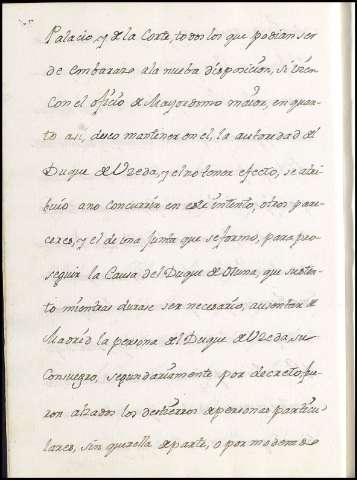 Palacio, y de la Corte, todos los que podian ser
de embarazo ala nueba disposicion, si bien
con el oficio de Mayordomo maior, en quan-
to asi, deseo mantener en el, la autoridad del
Duque de Uzeda, y el no tener efecto, se atri
buió ano concurrir en este intento, otros pare
ceres, y el de una Junta que se formo, para pro
seguir la Causa del Duque de Osuna, que su
to mientras durase ser necesario, ausentar de
Madrid la persona del Duque de Uzeda, su
Consuegro, segundariamente por decreto fu
ron alzados los destierros de personas particu
lares, sin querella de parte, o por modo de